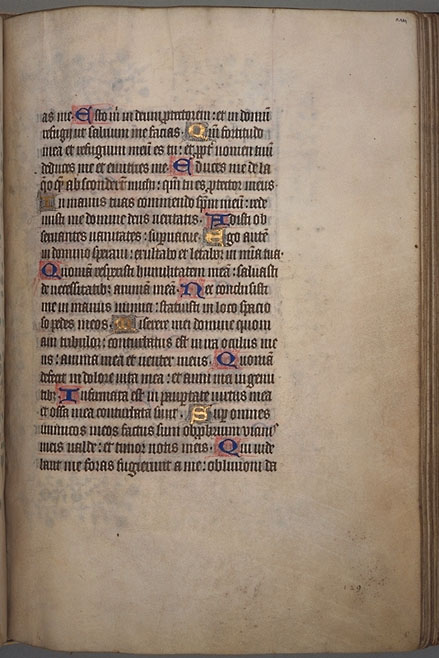 as me. Esto m̄ in deum ꝓtectorem: et in domū
refugij ut saluum me facias. Qm̄ fortitudo
mea et refugium meū es tu: et ꝓpt̄ nomen tuū
deduces me et enutries me. Educes me de la
q̄o q̄ absconderūt michi: qm̄ tu es ꝓtector meus
In manus tuas commendo sp̄m meū: rede
misti me domine deus ueritatis. Odisti ob
seruantes uanitates: supuacue. Ego autē
in domino speraui: exultabo et letabor in mīa tua.
Quoniā respexisti humilitatem meā: saluasti
de necessitatibꝫ animā meā. Nec conclusisti
me in manus inimici: statuisti in loco spacio
so pedes meos. Miserere mei domine quoni
am tribulor: conturbatus est in ira oculus me
us: anima mea et uenter meus. Quoniā
defecit in dolore uita mea: et anni mei in gemi
tibꝫ. Infirmata est in paupertate uirtus mea
et ossa mea conturbata sunt. Sup omnes
inimicos meos factus sum obꝓbrium uicinis
meis ualde: et timor notis meis. Qui uide
bant me foras fugierunt a me: obliuioni da